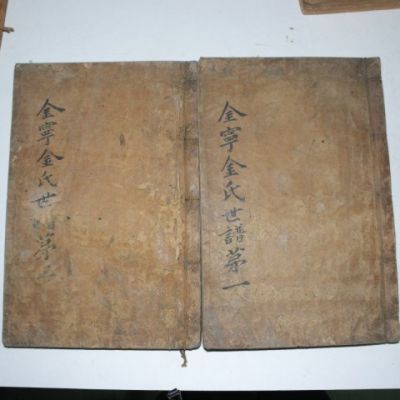 金寧金氏世譜第一
金寧金氏世譜第